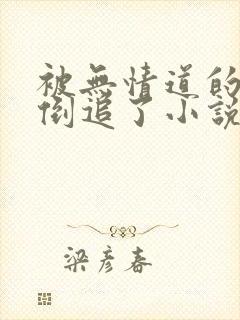 被無情道的
倒追了小說
梁彥春